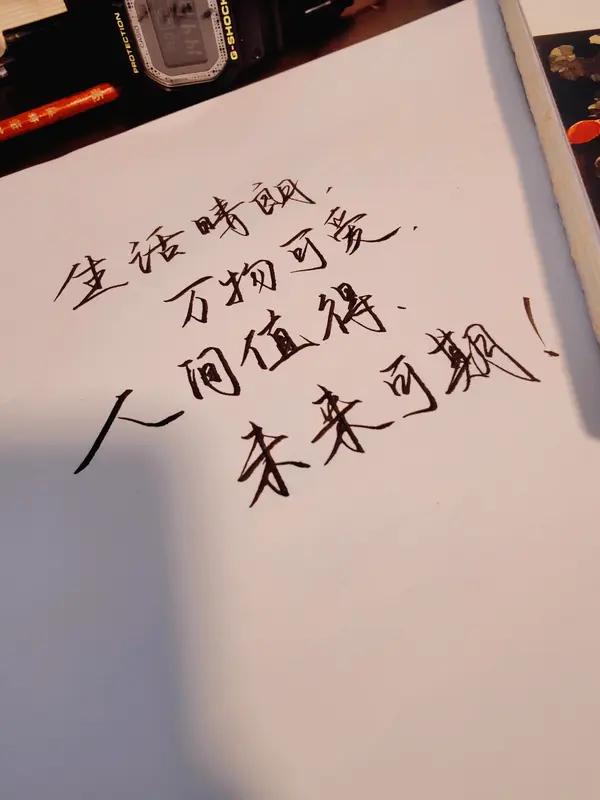 PROTECTION
G-SHOCK
生活晴朗.
万物可爱.
人间值得.
未来可期!